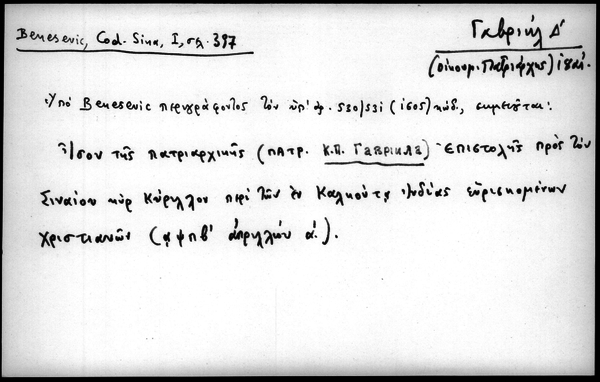 Benesevic, Cod. Sina, I, σελ. 397
Γαβριήλ Δ'
(Οἰκουμ. Πατριάρχης)
Ὑπό Benesevic περιγράφοντος τόν ὑπ' ἀρ. 530/531 (1505) κώδ., σημειοῦται:
Ἴσον τῆς πατριαρχικῆς (πατρ. Κ.Π. Γαβριήλ) ἐπιστολῆς πρός τόν
Σιναίου κύρ Κύριλλον περί τῶν ἐν Καλκούτᾳ Ἰνδίας εὑρισκομένων
χριστιανῶν (αψπβ' ἀπριλίου α').